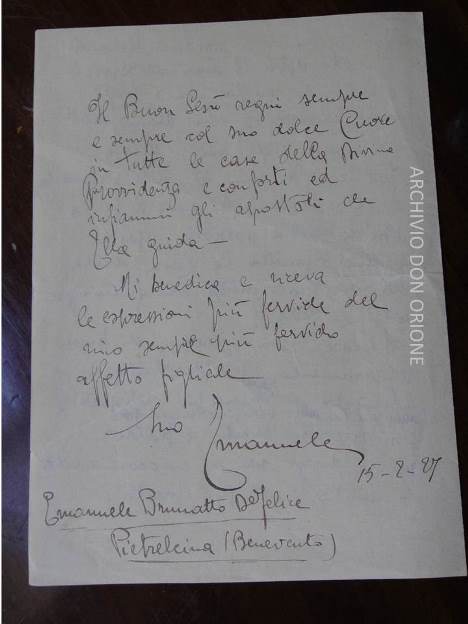 Il Buon Gesù regni sempre
e sempre col suo dolce Cuore
in tutte le case della Divina
Provvidenza e conforti ed
infiammi gli apostoli che
Ella guida —
Mi benedica e riceva
le espressioni più fervide del
mio sempre più fervido
affetto figliale
Suo Emanuele
15-2-27
Emanuele Brunatto De Felice
Pietrelcina (Benevento)
ARCHIVIO DON ORIONE